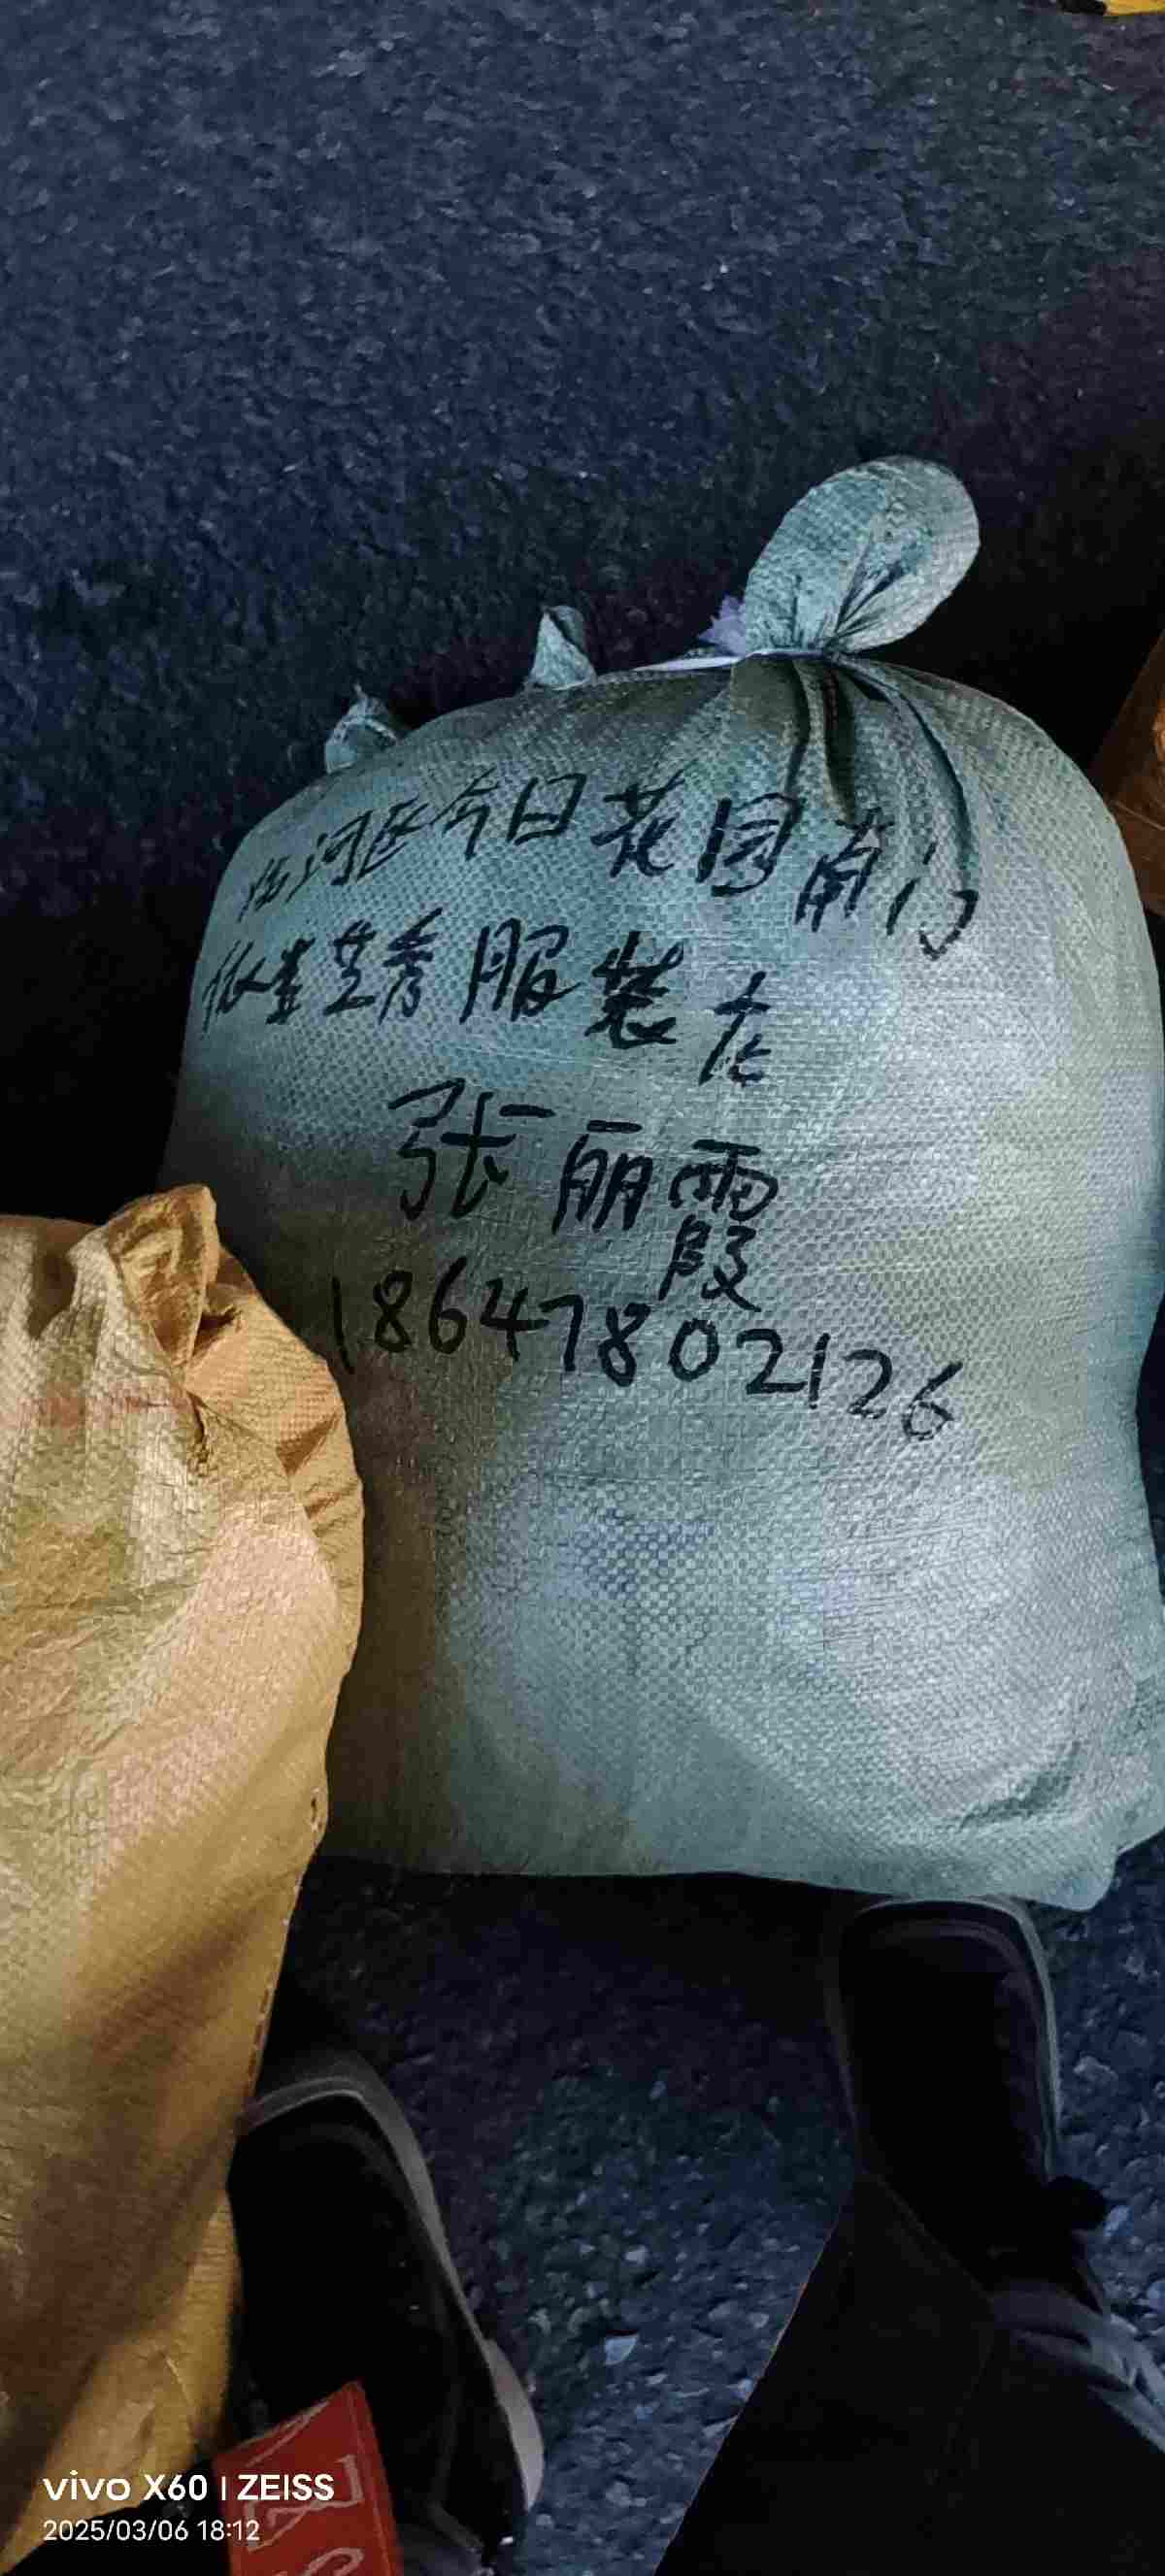 临河区今日花园南门
依萱芝秀服装店
张丽霞
18647802126
vivo X60 | ZEISS
2025/03/06 18:12